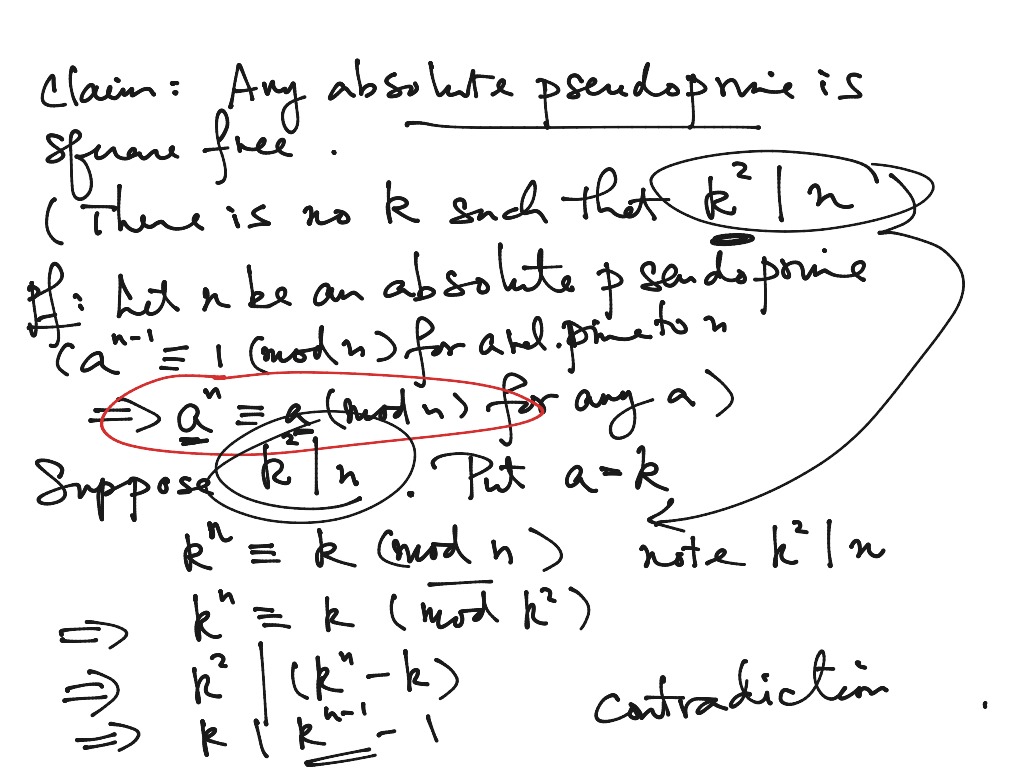 Claim: Any absolute pseudoprime is
square free.
(There is no k such that k² | n)
Pf: Let n be an absolute pseudoprime
(aⁿ⁻¹ ≡ 1 (mod n) for a rel. prime to n
⇒ aⁿ ≡ a (mod n) for any a)
Suppose k² | n. Put a = k
kⁿ ≡ k (mod n) note k² | n
⇒ kⁿ ≡ k (mod k²)
⇒ k² | (kⁿ - k)
⇒ k | kⁿ⁻¹ - 1 contradiction.